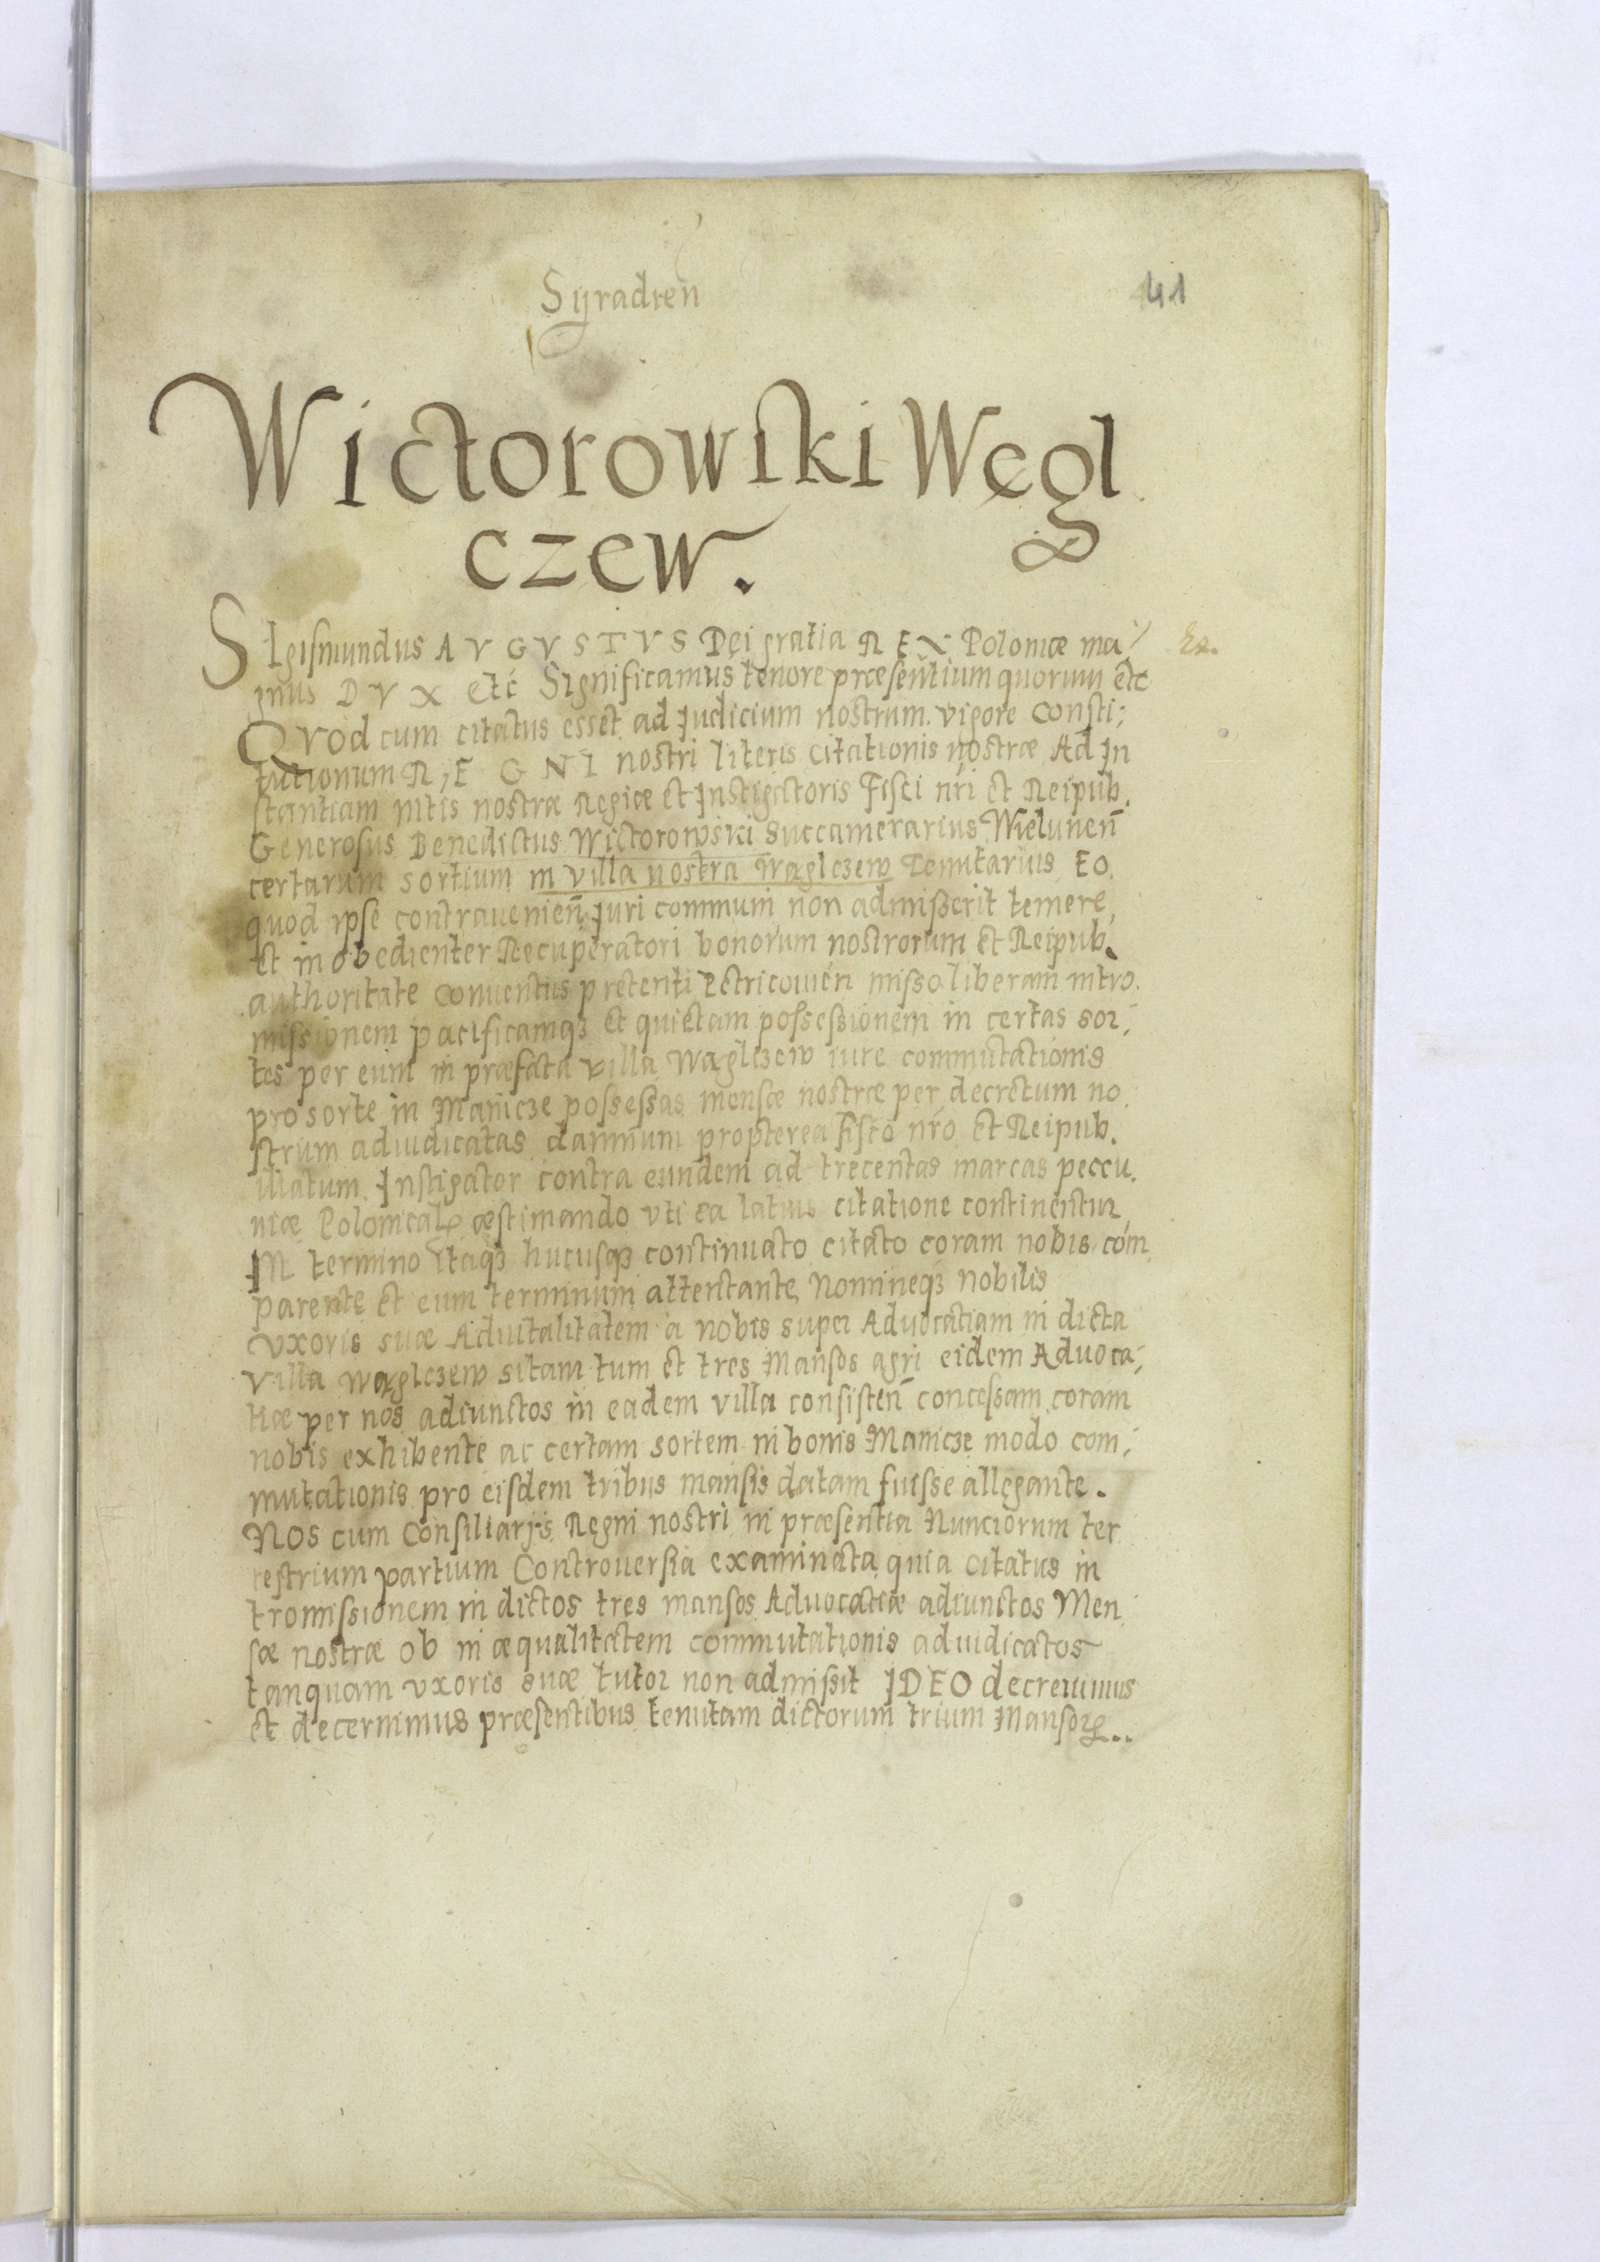 Syradień
41
Wictorowski Węgl
czew.
SIgismundus AVGVSTVS Dei gratia REX Poloniæ ma
gnus DVX etć Significamus tenore præsentium quorum etc
QVod cum citatus esset ad Judicium nostrum vigore Consti;
tutionum REGNI nostri literis citationis nostræ Ad In
stantiam mtis nostræ Regiæ et Instigatoris Fisci nri et Reipub.
Generosus Benedictus Wictorowski Succamerarius Wielunen̄
certarum sortium in villa nostra Waglczew Tenutarius EO
quod ipse contravenien̄ Juri communi non admiserit temere
et inobedienter Recuperatori bonorum nostrorum et Reipub.
authoritate conventus preteriti Petricovien misso liberam intro.
missionem pacificamq3 et quietam possessionem in certas sor;
tes per eum in præfata villa Waglczew iure commutationis
pro sorte in Manicze possessas mensæ nostræ per decretum no
strum adiudicatas damnum propterea Fisco nr̄o et Reipub.
illatum. Instigator contra eundem ad trecentas marcas peccu.
niæ Polonicalꝝ æstimando vti ea latius citatione continentur
IN termino itaq3 hucusq3 continuato citato coram nobis com
parente et eum terminum attentante Nomineq3 nobilis
vxoris suæ Advitalitatem a nobis super Advocatiam in dicta
villa Wąglczew sitam tum et tres Mansos agri eidem Advoca;
tiæ per nos adiunctos in eadem villa consisten̄ concessam coram
nobis exhibente ac certam sortem in bonis Manicze modo com;
mutationis pro eisdem tribus mansis datam fuisse allegante.
NOS cum Consiliarijs Regni nostri in præsentia Nunciorum ter
restrium partium Controversia examinata quia citatus in
tromissionem in dictos tres mansos Advocatiæ adiunctos Men
sæ nostræ ob inæqualitatem commutationis adiudicatos
tanquam vxoris suæ tutor non admisit IDEO decrevimus
et decernimus præsentibus tenutam dictorum trium Mansorꝝ..